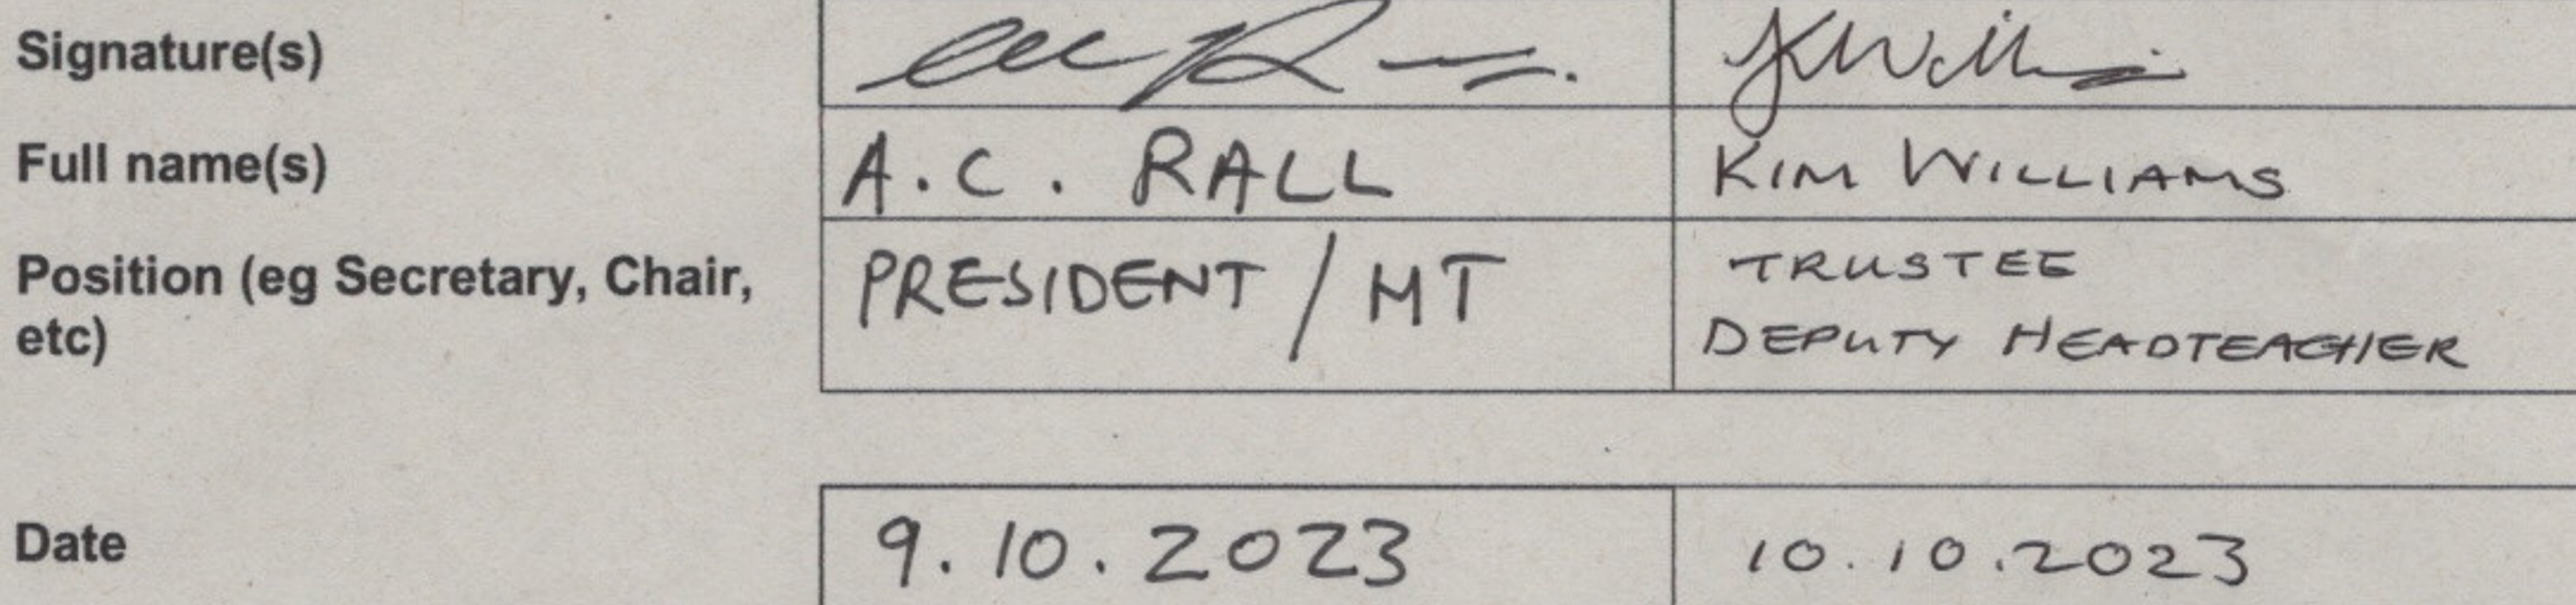 Signature(s)
Full name(s) A.C. RALL KIM WILLIAMS
Position (eg Secretary, Chair, PRESIDENT / HT TRUSTEE
etc) DEPUTY HEADTEACHER
Date 9.10.2023 10.10.2023